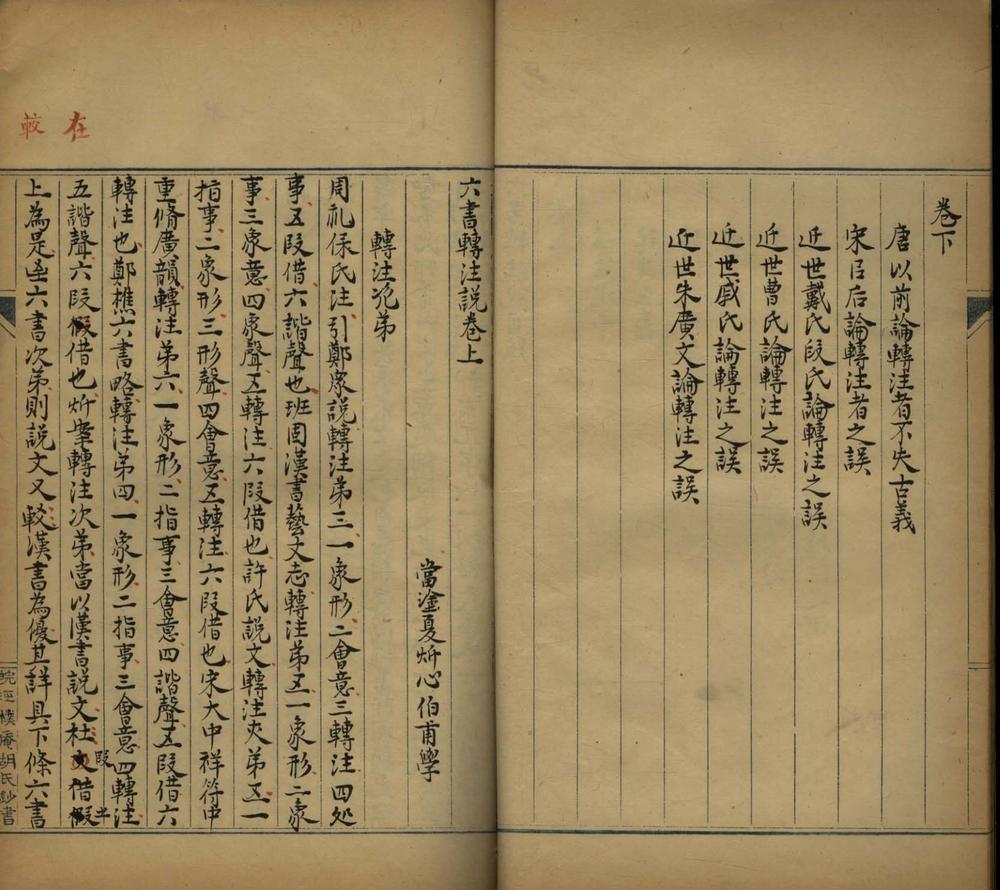 卷下
唐以前論轉注者不失古義
宋召后論轉注者之誤
近世戴氏段氏論轉注之誤
近世曹氏論轉注之誤
近世戚氏論轉注之誤
近世朱廣文論轉注之誤
六書轉注說卷上
當塗夏炘心伯甫學
轉注㐧弟
周礼保氏注引鄭衆說轉注弟三一象形二會意三轉注四処
事五叚借六諧聲也班固漢書藝文志轉注弟五一象形二象
事三象意四象聲五轉注六叚借也許氏說文轉注夾弟五一
指事二象形三形聲四會意五轉注六叚借也宋大中祥符中
重脩廣韻轉注弟六一象形二指事三會意四諧聲五叚借六
轉注也鄭樵六書略轉注弟四一象形二指事三會意四轉注
五諧聲六叚假借也炘案轉注次弟當以漢書說文杜
叚借
上為是至六書次弟則說文又較漢書為優其詳具下條六書
在
較
皖涇樸庵胡氏鈔書